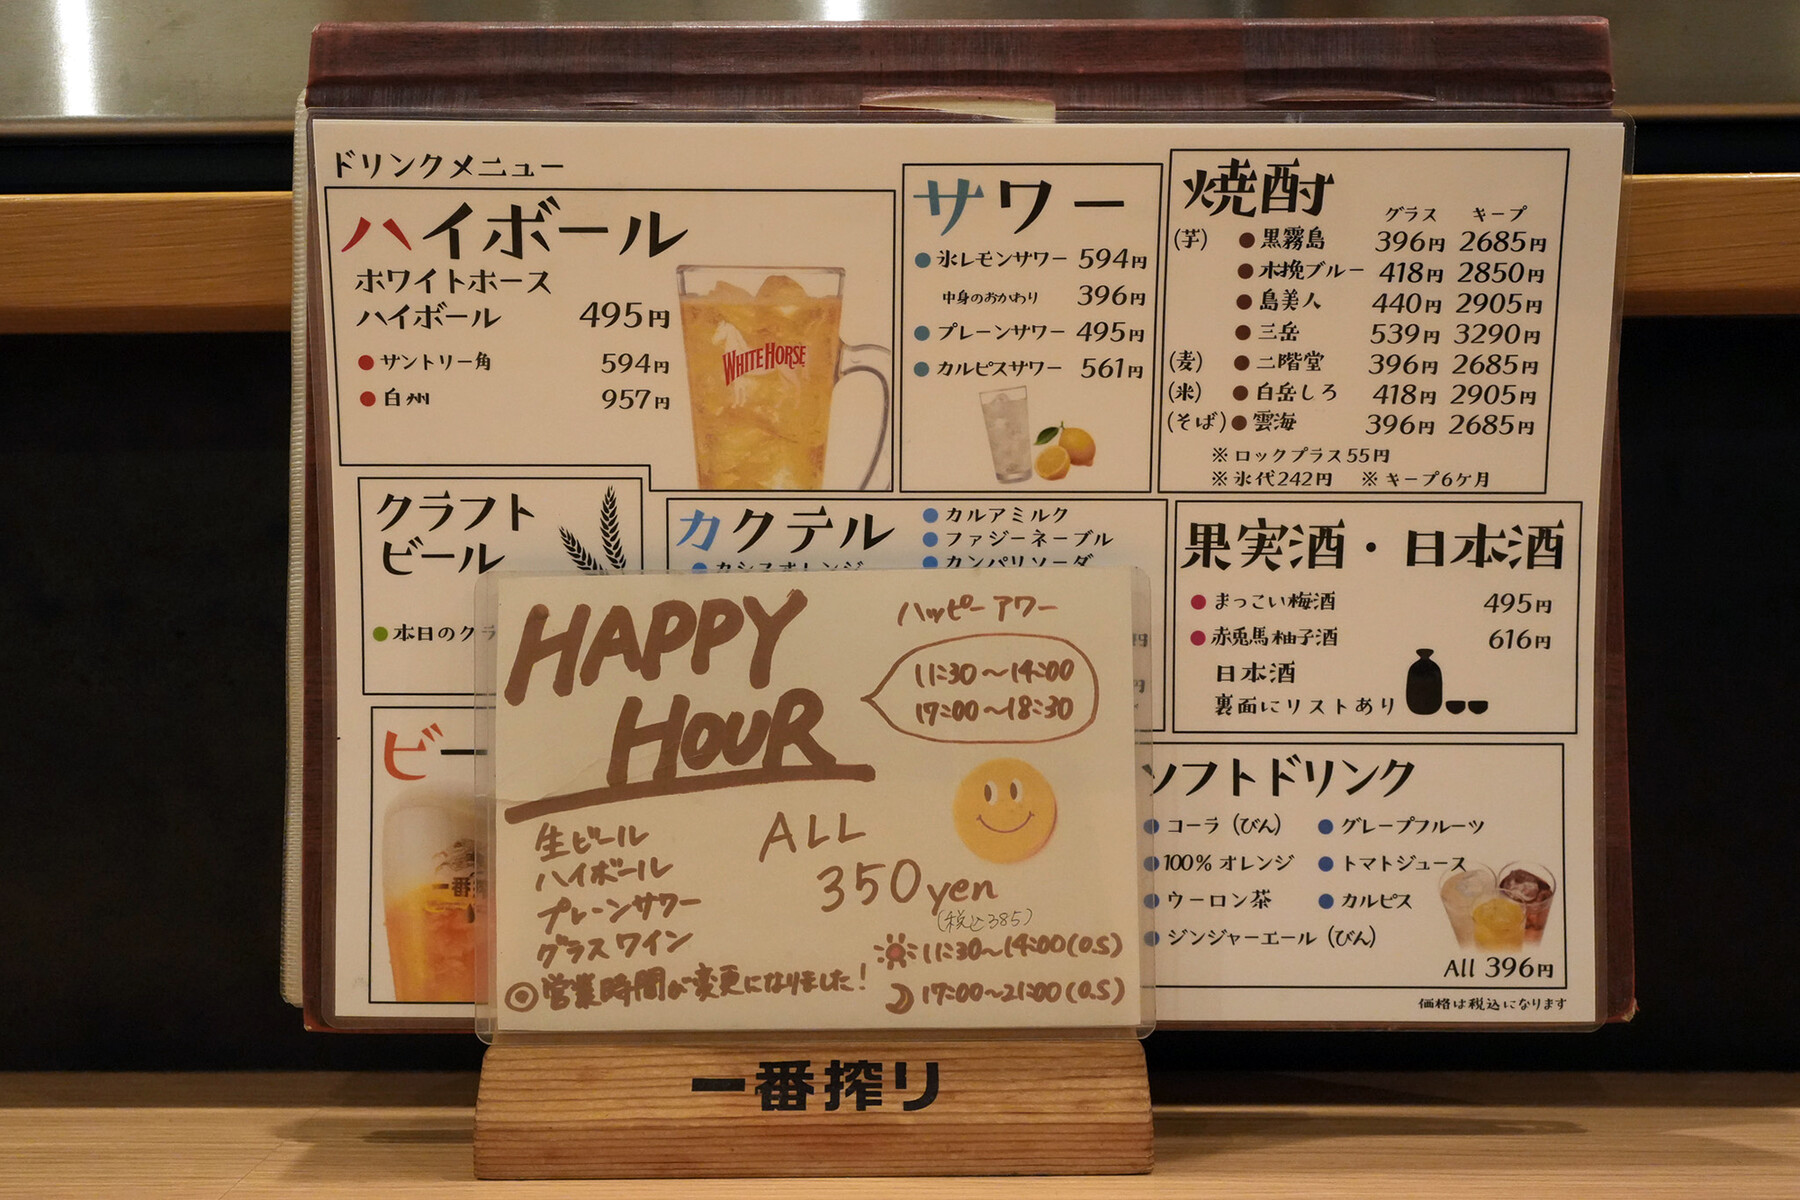 ドリンクメニュー
ハイボール
ホワイトホース
ハイボール 495円
サントリー角 594円
白州 957円
WHITE HORSE
サワー
氷レモンサワー 594円
中身のおかわり 396円
プレーンサワー 495円
カルピスサワー 561円
焼酎
グラス キープ
(芋) 黒霧島 396円 2685円
木挽ブルー 418円 2850円
島美人 440円 2905円
三岳 539円 3290円
(麦) 二階堂 396円 2685円
(米) 白岳しろ 418円 2905円
(そば) 雲海 396円 2685円
※ロックプラス55円
※氷代242円 ※キープ6ケ月
クラフト
ビール
本日のクラ
カクテル
カシスオレンジ
カルアミルク
ファジーネーブル
カンパリソーダ
円
円
果実酒・日本酒
まっこい梅酒 495円
赤兎馬柚子酒 616円
日本酒
裏面にリストあり
ビー
一番搾
ソフトドリンク
コーラ(びん) グレープフルーツ
100%オレンジ トマトジュース
ウーロン茶 カルピス
ジンジャーエール(びん)
All 396円
価格は税込になります
HAPPY
HOUR
ハッピーアワー
11:30〜14:00
17:00〜18:30
生ビール
ハイボール
プレーンサワー
グラスワイン
ALL
350yen
(税込385)
◎営業時間が変更になりました!
11:30〜14:00(O.S)
17:00〜21:00(O.S)
一番搾り